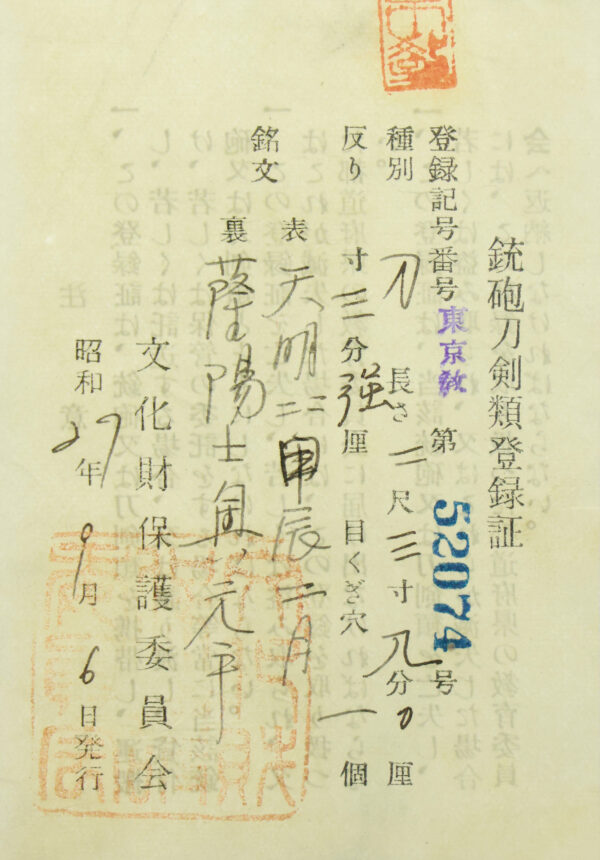 銃砲刀剣類登録証
登録記号番号 東京教 第 52074 号
種別 刀 長さ 二尺三寸九分0厘
反り 寸三分強厘 目くぎ穴 一個
銘文 表 天明二二甲辰二月
裏 薩陽士奥元平
文化財保護委員会
昭和27年9月6日発行